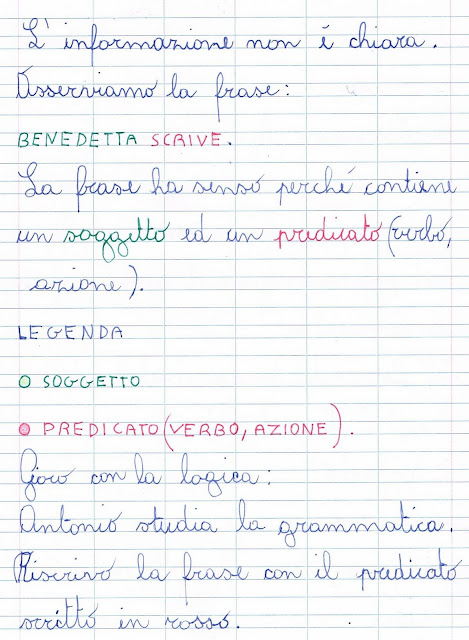 L'informazione non è chiara.
Osserviamo la frase:
BENEDETTA SCRIVE.
La frase ha senso perché contiene
un soggetto ed un predicato (verbo,
azione).
LEGENDA
SOGGETTO
PREDICATO (VERBO, AZIONE).
Gioco con la logica:
Antonio studia la grammatica.
Riscrivo la frase con il predicato
scritto in rosso.